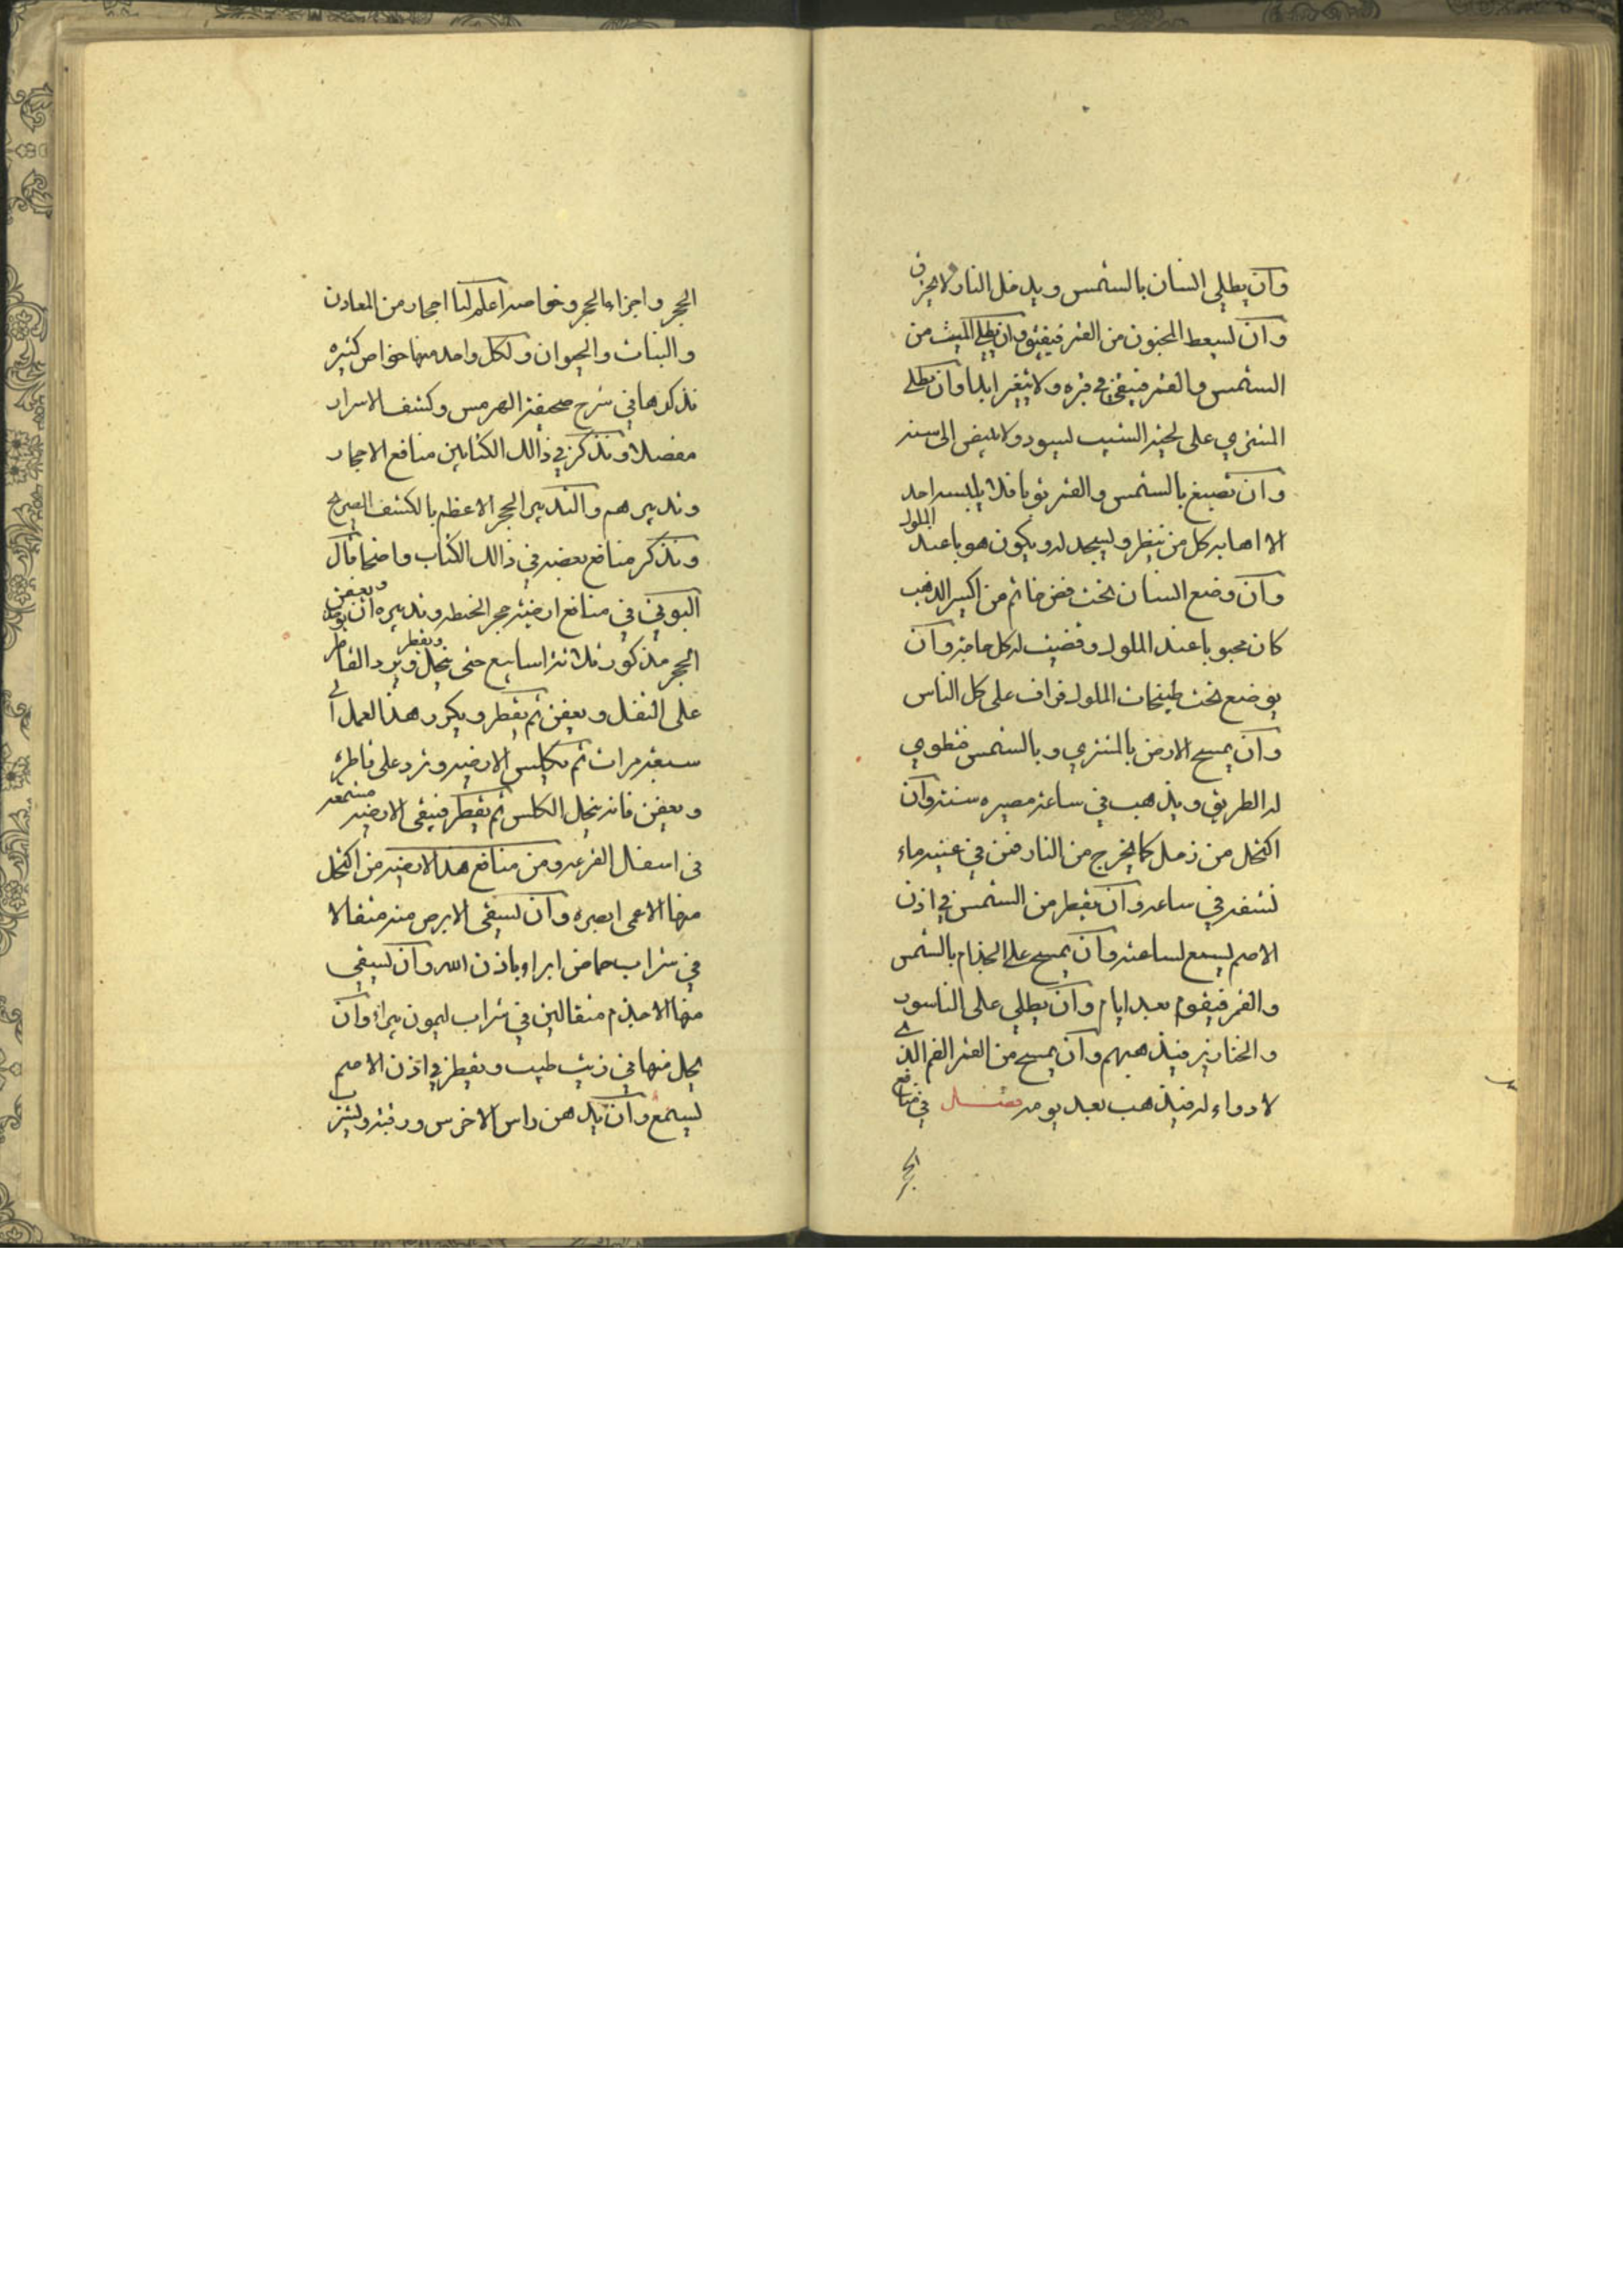 وان يطلي انسان بالشمس ويدخل النار ولا يحرق
وان يسعط المجنون من القمر فيفيق وان يطلي الميت من
الشمس والقمر فيبقي في قبره ولا يتغير ابدا وان يطلي
المشتري على لحية الشيب يسود ولا يبيض الى سنة
وان تصبغ بالشمس والقمر ثوبا فلا يلبسه احد
الا اهابه كل من ينظر ويسجد له ويكون هو با عند الملوك
وان وضع انسان تحت فص خاتم من اكسير الذهب
كان محبوبا عند الملوك وقضيت له كل حاجة وان
يوضع تحت الملوك على كل الناس
وان يمسح الارض بالمشتري وبالشمس فتطوي
له الطريق ويذهب في ساعة مصيره سنة وان
اكتحل من زحل كما يخرج من النار فمن في عينيه ماء
نشفه في ساعه وان يقطر من الشمس في اذن
الاصم يسمع لساعته وان يمسح على الجذام بالشمس
والقمر فيقوم بعد ايام وان يطلي على الناسور
والخنازير فيذهبهم وان يمسح من القمر الفم الذي
لا دواء له فيذهب بعد يومه فصل في منافع
الحجر
الحجر واجزاء الحجر وخواصه اعلم لنا احجار من المعادن
والنبات والحيوان ولكل واحد منها خواص كثيره
نذكرها في شرح صحيفة الهرمس وكشف الاسرار
مفصلا ونذكر في ذالك الكتابين منافع الاحجار
وتدبيرهم والتدبير الحجر الاعظم بالكشف الصريح
ونذكر منافع بعضه في ذالك الكتاب واضحا قال
البوني في منافع ارضية حجر الحنطه وتدبيره ان يوخذ ويعفن
الحجر مذكور ثلاثة اسابيع حتى ينحل ويقطر ويرد القاطر
على الثفل ويعفن ثم يقطر ويكرر هذا العمل الى
سبعة مرات ثم تكليس الارضيه وترد على قاطره
ويعفن فانه ينحل الكلس ثم يقطر فيبقى الارضيه مشمعه
في اسفال القرعه ومن منافع هذ الارضيه من اكتحل
منها الاعمى ابصره وان يسقى الابرص منه مثقالا
في شراب حماض ابراء باذن الله وان يسقي
منها الاجذم مثقالين في شراب ليمون يبراء وان
يحل منها في زيت طيب ويقطر في اذن الاصم
يسمع وان يدهن راس الاخرس ورقبته ويشرب